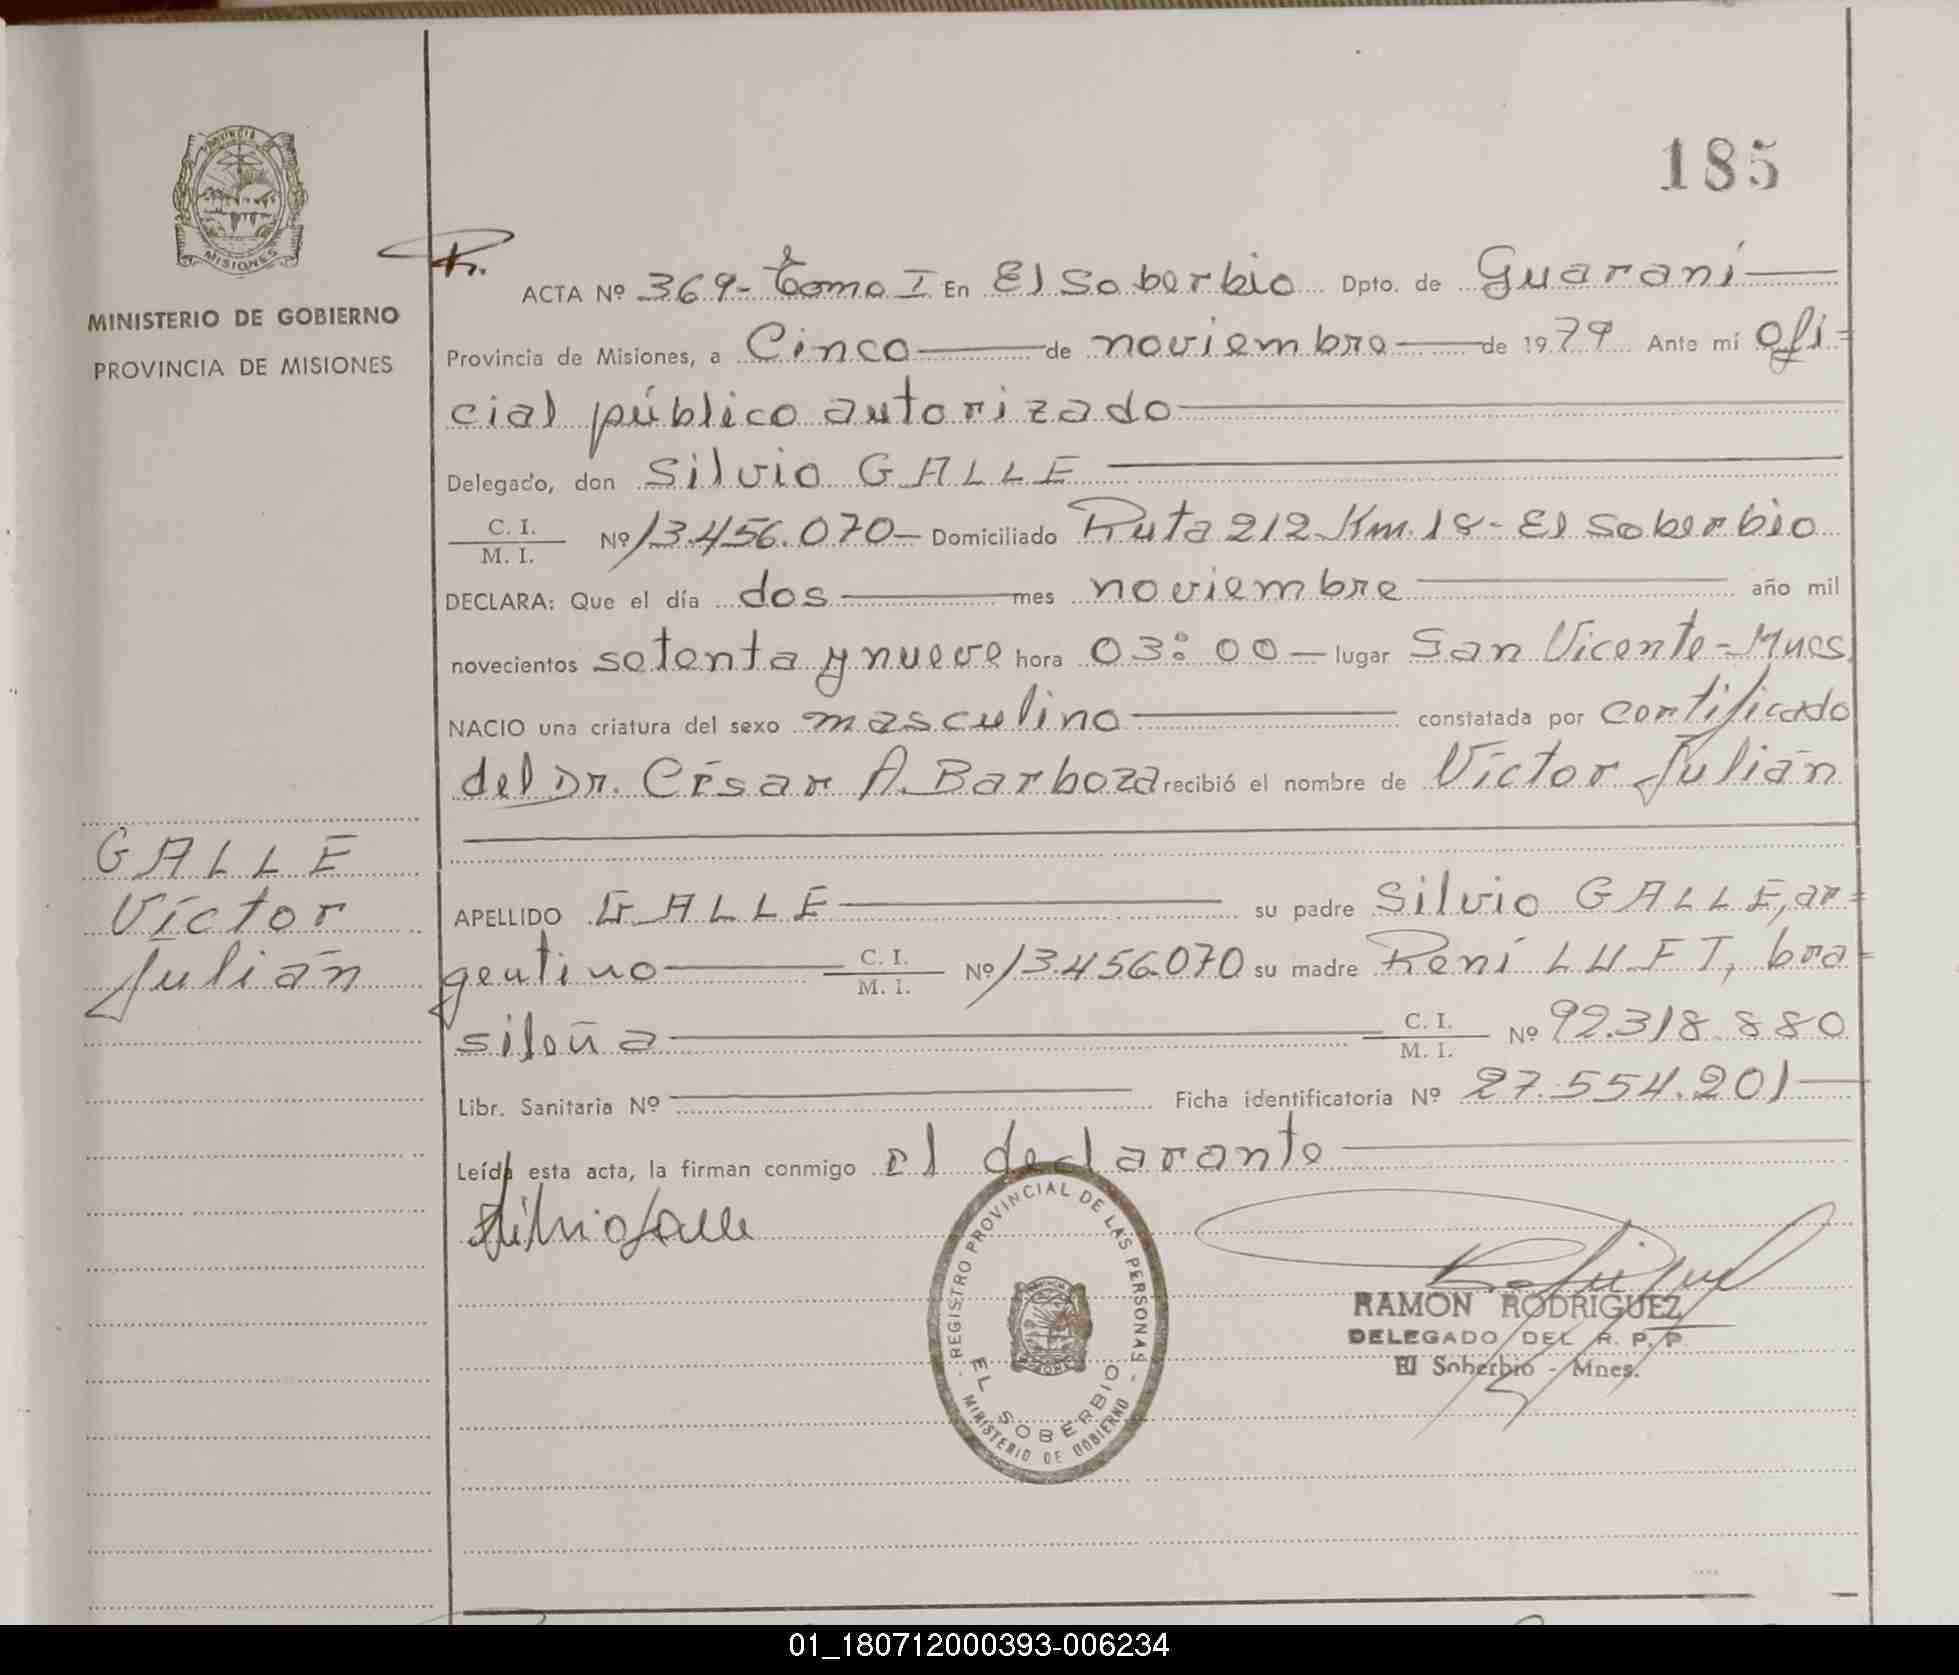 185
PROVINCIA
MISIONES
MINISTERIO DE GOBIERNO
PROVINCIA DE MISIONES
ACTA Nº 369- Tomo I En El Soberbio Dpto. de Guaraní
Provincia de Misiones, a Cinco de noviembre de 1979 Ante mí ofi=
cial público autorizado
Delegado, don Silvio GALLE
C. I.
M. I. Nº 13.456.070 - Domiciliado Ruta 212 Km. 18 - El Soberbio
DECLARA: Que el día dos mes noviembre año mil
novecientos setenta y nueve hora 03:00 - lugar San Vicente = Mnes
NACIO una criatura del sexo masculino constatada por certificado
del Dr. César A. Barboza recibió el nombre de Víctor Julián
GALLE
Víctor
Julián
APELLIDO GALLE su padre Silvio GALLE, ar=
gentino C. I. M. I. Nº 13.456.070 su madre Reni LUFT, bra=
sileña C. I. M. I. Nº 92.318.880
Libr. Sanitaria Nº Ficha identificatoria Nº 27.554.201
Leída esta acta, la firman conmigo el declarante
Silvio Galle
REGISTRO PROVINCIAL DE LAS PERSONAS
EL SOBERBIO
MINISTERIO DE GOBIERNO
RAMON RODRIGUEZ
DELEGADO DEL R. P. P.
El Soberbio - Mnes.
01_180712000393-006234